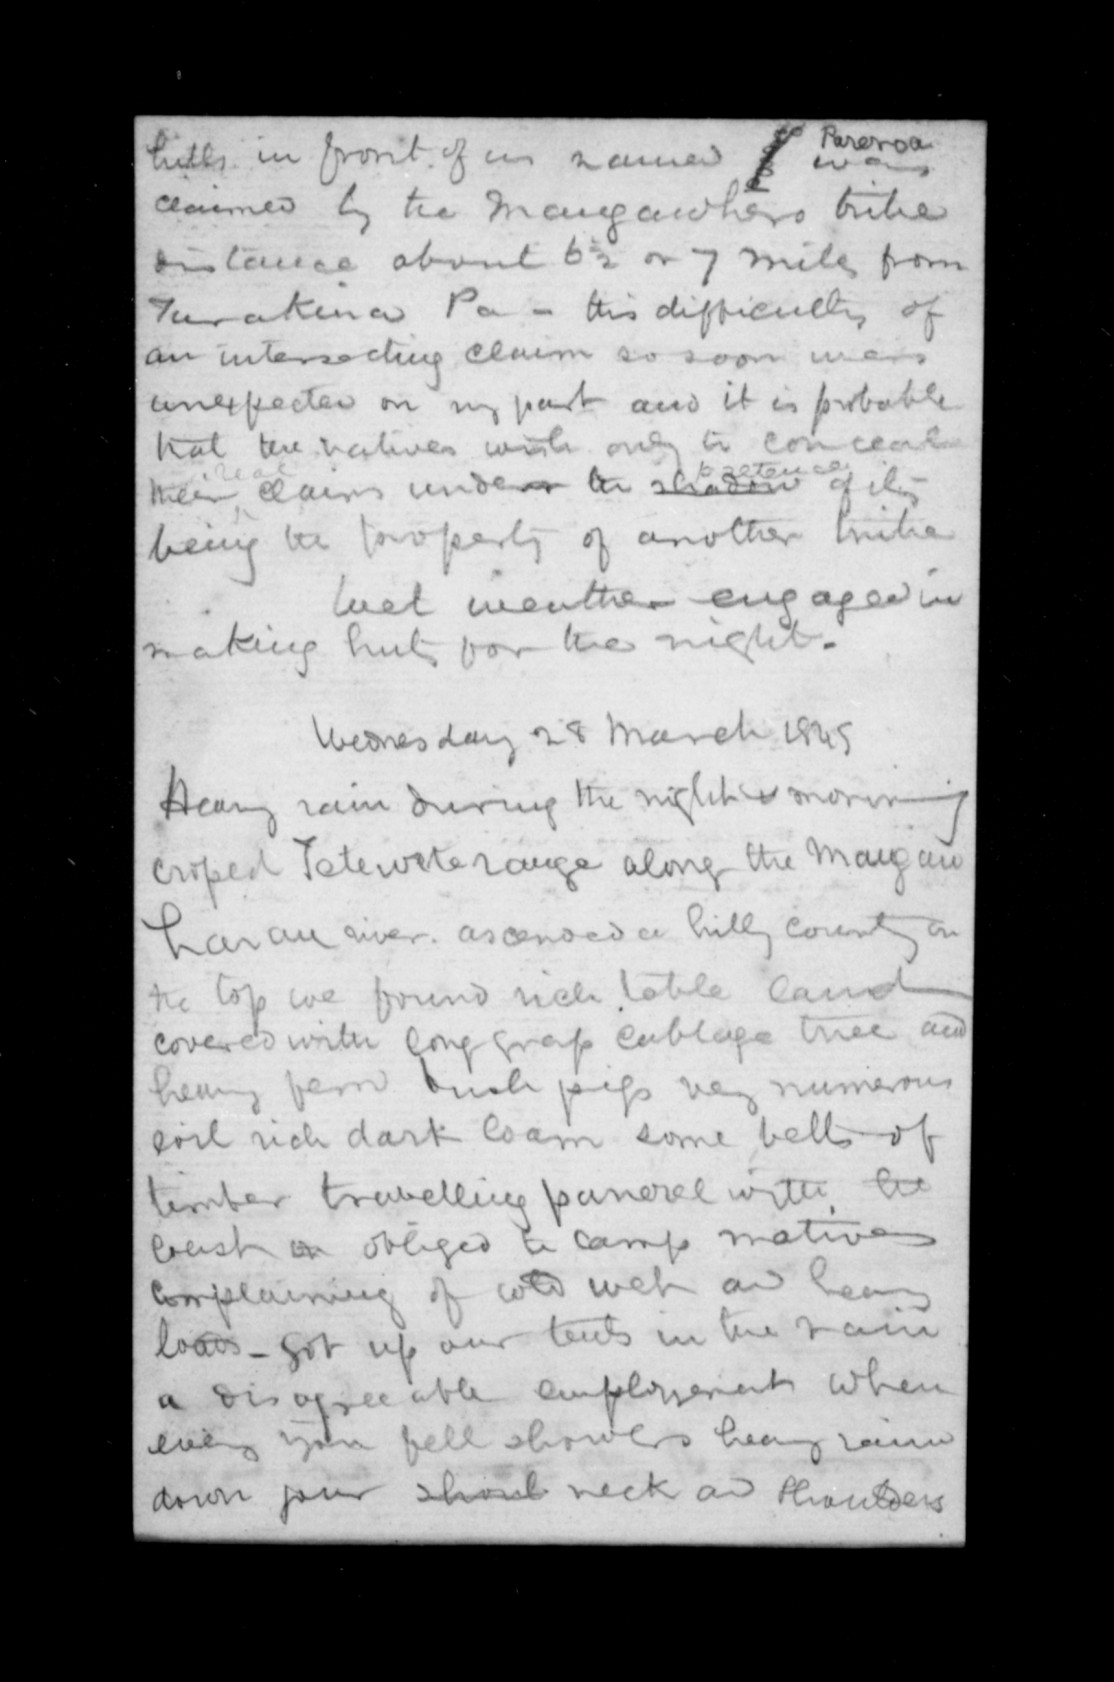 hills in front of us named Pareroa was
claimed by the Mangawhero tribe
distance about 6½ or 7 miles from
Turakina Pa - this difficulty of
an intersecting claim so soon was
unexpected on my part and it is probable
that the natives wish only to conceal
their real claims under the shadow pretence of its
being the property of another tribe
Wet weather engaged in
making huts for the night.
Wednesday 28 March 1849
Heavy rain during the night & morning
croped range along the Mangaw
harau river. ascended a hilly country on
the top we found rich table land
covered with long grass cabbage tree and
heavy fern bush pigs very numerous
soil rich dark loam some belts of
timber travelling paneral with the
coast obliged to camp natives
complaining of cold wet and heavy
loads - got up our tents in the rain
a disagreeable employment when
every you fell showers heavy rain
down your neck and shoulders